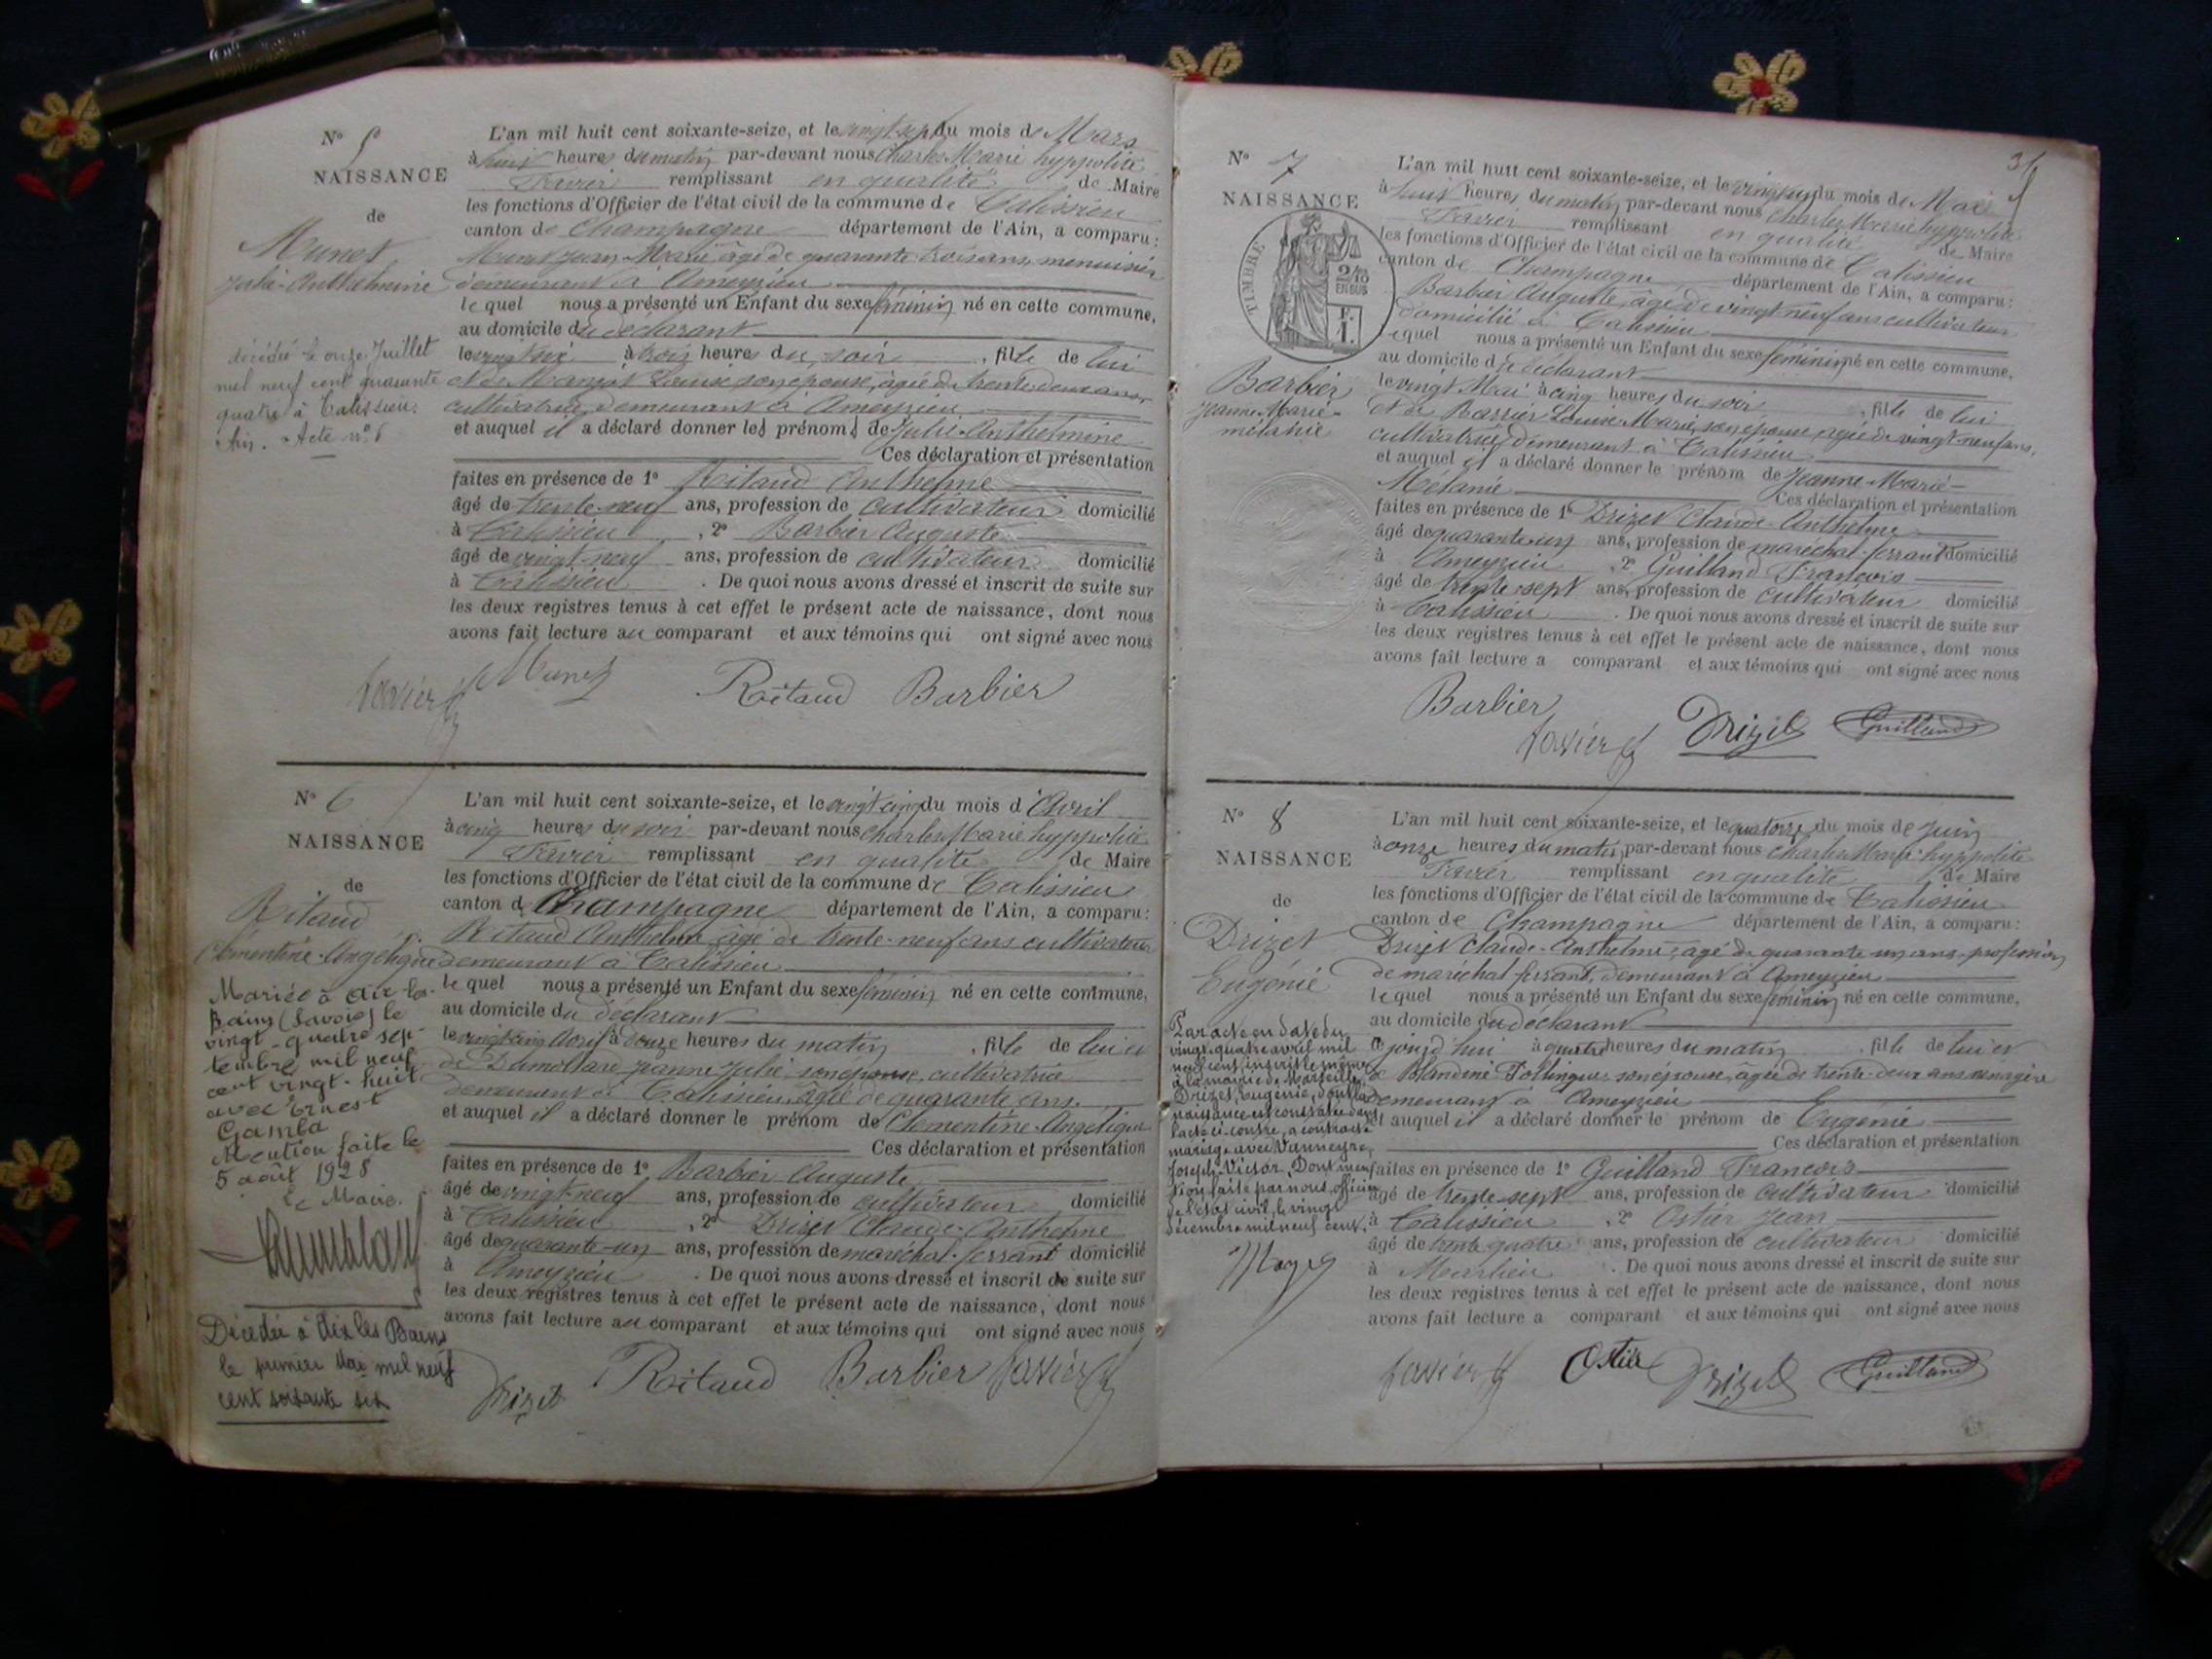 N° 5
NAISSANCE
de
Munet
Julie-Anthelmine
décédée le onze Juillet
mil neuf cent quarante
quatre à Talissieu.
Ain. Acte n° 6
L'an mil huit cent soixante-seize, et le vingt-sept du mois de Mars
à huit heures du matin par-devant nous Charles Marie hyppolite
remplissant en qualité de Maire
les fonctions d'Officier de l'état civil de la commune de Talissieu
canton de Champagne département de l'Ain, a comparu :
Munet Jean-Marie âgé de quarante-trois ans, menuisier
demeurant à Ameyzieu
lequel nous a présenté un Enfant du sexe féminin né en cette commune,
au domicile du déclarant
le vingt six à trois heures du soir, fille de lui
et de Louise son épouse, âgée de trente-deux ans,
cultivatrice, demeurant à Ameyzieu
et auquel il a déclaré donner les prénoms de Julie-Anthelmine
Ces déclaration et présentation
faites en présence de 1° Ritaud Anthelme
âgé de trente-neuf ans, profession de cultivateur domicilié
à Talissieu, 2° Barbier Auguste
âgé de vingt-neuf ans, profession de cultivateur domicilié
à Talissieu. De quoi nous avons dressé et inscrit de suite sur
les deux registres tenus à cet effet le présent acte de naissance, dont nous
avons fait lecture au comparant et aux témoins qui ont signé avec nous
Munet Ritaud Barbier
N° 6
NAISSANCE
de
Ritaud
Clémentine-Angélique
Mariée à Aix-les-
Bains (Savoie) le
vingt-quatre sep-
tembre mil neuf
cent vingt-huit
avec Ernest
Gamba
Mention faite le
5 août 1928
Le Maire.
Décédée à Aix les Bains
le premier Mai mil neuf
cent soixante six
L'an mil huit cent soixante-seize, et le vingt-cinq du mois d'Avril
à cinq heures du soir par-devant nous Charles Marie hyppolite
remplissant en qualité de Maire
les fonctions d'Officier de l'état civil de la commune de Talissieu
canton de Champagne département de l'Ain, a comparu :
Ritaud Anthelme âgé de trente-neuf ans cultivateur
demeurant à Talissieu
lequel nous a présenté un Enfant du sexe féminin né en cette commune,
au domicile du déclarant
le vingt-cinq Avril à douze heures du matin, fille de lui et
de Dumollard Jeanne Julie, son épouse, cultivatrice
demeurant à Talissieu, âgée de quarante ans.
et auquel il a déclaré donner le prénom de Clémentine-Angélique
Ces déclaration et présentation
faites en présence de 1° Barbier Auguste
âgé de vingt-neuf ans, profession de cultivateur domicilié
à Talissieu, 2° Drizet Claude-Anthelme
âgé de quarante-un ans, profession de maréchal-ferrant domicilié
à Ameyzieu. De quoi nous avons dressé et inscrit de suite sur
les deux registres tenus à cet effet le présent acte de naissance, dont nous
avons fait lecture au comparant et aux témoins qui ont signé avec nous
Drizet Ritaud Barbier
N° 7
NAISSANCE
TIMBRE
2/10
EN SUS
Barbier
Jeanne-Marie-
mélanie
L'an mil huit cent soixante-seize, et le du mois de Mai
à huit heures du matin par-devant nous Charles Marie hyppolite
remplissant en qualité de Maire
les fonctions d'Officier de l'état civil de la commune de Talissieu
canton de Champagne département de l'Ain, a comparu :
Barbier Auguste, âgé de vingt-neuf ans cultivateur
domicilié à Talissieu
lequel nous a présenté un Enfant du sexe féminin né en cette commune,
au domicile du déclarant
le vingt Mai à cinq heures du soir, fille de lui
et de Louise Marie, son épouse, âgée de vingt-neuf ans,
cultivatrice, demeurant à Talissieu
et auquel il a déclaré donner le prénom de Jeanne-Marie-
Mélanie
Ces déclaration et présentation
faites en présence de 1° Drizet Claude-Anthelme
âgé de quarante-un ans, profession de maréchal-ferrant domicilié
à Ameyzieu, 2° Guilland François
âgé de trente-sept ans, profession de cultivateur domicilié
à Talissieu. De quoi nous avons dressé et inscrit de suite sur
les deux registres tenus à cet effet le présent acte de naissance, dont nous
avons fait lecture a comparant et aux témoins qui ont signé avec nous
Barbier
Drizet Guilland
N° 8
NAISSANCE
de
Drizet
Eugénie
Par acte en date du
vingt-quatre avril mil
neuf cent, inscrit le même jour
à la mairie de Marseille,
Drizet, Eugénie, dont la
naissance est constatée dans
l'acte ci-contre, a contracté
mariage avec Vanneyre,
Joseph-Victor. Dont men-
tion faite par nous, officier
de l'état civil, le vingt
décembre mil neuf cent.
L'an mil huit cent soixante-seize, et le quatorze du mois de Juin
à onze heures du matin, par-devant nous Charles Marie hyppolite
remplissant en qualité de Maire
les fonctions d'Officier de l'état civil de la commune de Talissieu
canton de Champagne département de l'Ain, a comparu :
Drizet Claude-Anthelme, âgé de quarante-un ans, profession
de maréchal ferrant, demeurant à Ameyzieu
lequel nous a présenté un Enfant du sexe féminin né en cette commune,
au domicile du déclarant
ce jourd'hui à quatre heures du matin, fille de lui et
de Blandine son épouse, âgée de trente-deux ans ménagère
demeurant à Ameyzieu
et auquel il a déclaré donner le prénom de Eugénie
Ces déclaration et présentation
faites en présence de 1° Guilland François
âgé de trente-sept ans, profession de cultivateur domicilié
à Talissieu, 2° Ostier Jean
âgé de trente quatre ans, profession de cultivateur domicilié
à Marlieu. De quoi nous avons dressé et inscrit de suite sur
les deux registres tenus à cet effet le présent acte de naissance, dont nous
avons fait lecture a comparant et aux témoins qui ont signé avec nous
Ostier Drizet Guilland